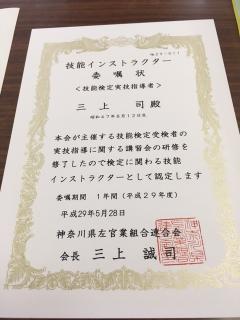 技能インストラクター
委嘱状
<技能検定実技指導者>
三上 司殿
昭和47年8月12日生
本会が主催する技能検定受検者の
実技指導に関する講習会の研修を
修了したので検定に関わる技能
インストラクターとして認定します
委嘱期間 1年間(平成29年度)
平成29年5月28日
神奈川県左官業組合連合会
会長 三上誠司